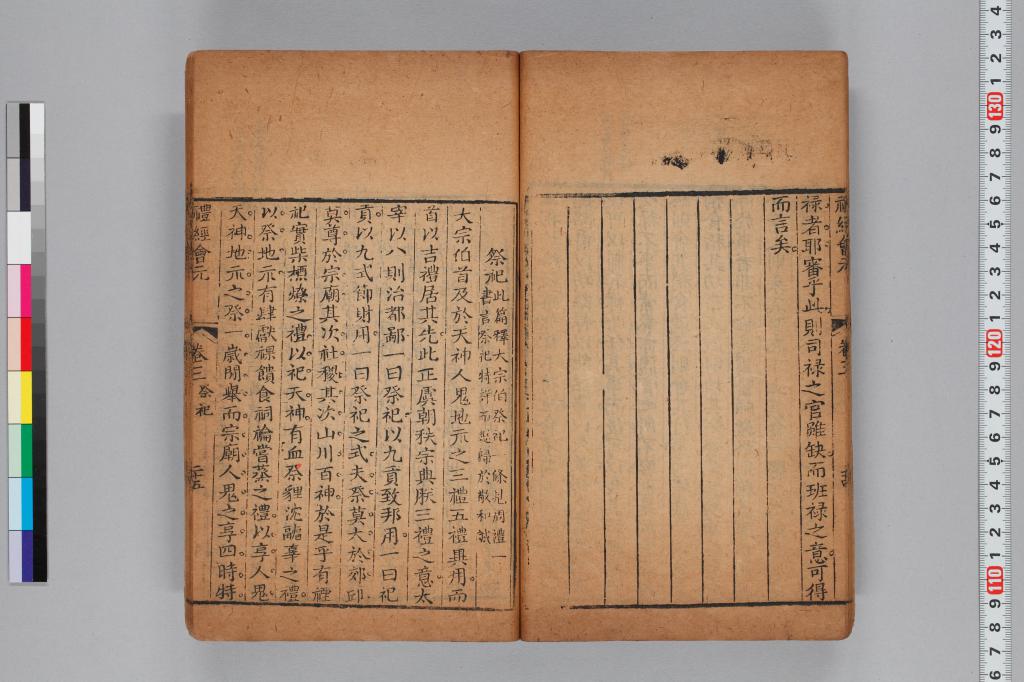 禮經會元 卷三
祿者耶審乎此則司祿之官雖缺而班祿之意可得
而言矣
祭祀此篇釋大宗伯祭祀一條見周禮一
書言祭祀特詳而總歸於敬和誠
大宗伯首及於天神人鬼地示之三禮五禮具用而
首以吉禮居其先此正虞朝秩宗典朕三禮之意太
宰以八則治都鄙一曰祭祀以九貢致邦用一曰祀
貢以九式節財用一曰祭祀之式夫祭莫大於郊邱
莫尊於宗廟其次社稷其次山川百神於是乎有禋
祀實柴槱燎之禮以祀天神有血祭貍沈疈辜之禮
以祭地示有肆獻祼饋食祠禴嘗蒸之禮以享人鬼
天神地示之祭一歲間舉而宗廟人鬼之享四時特
禮經會元 卷三 祭祀